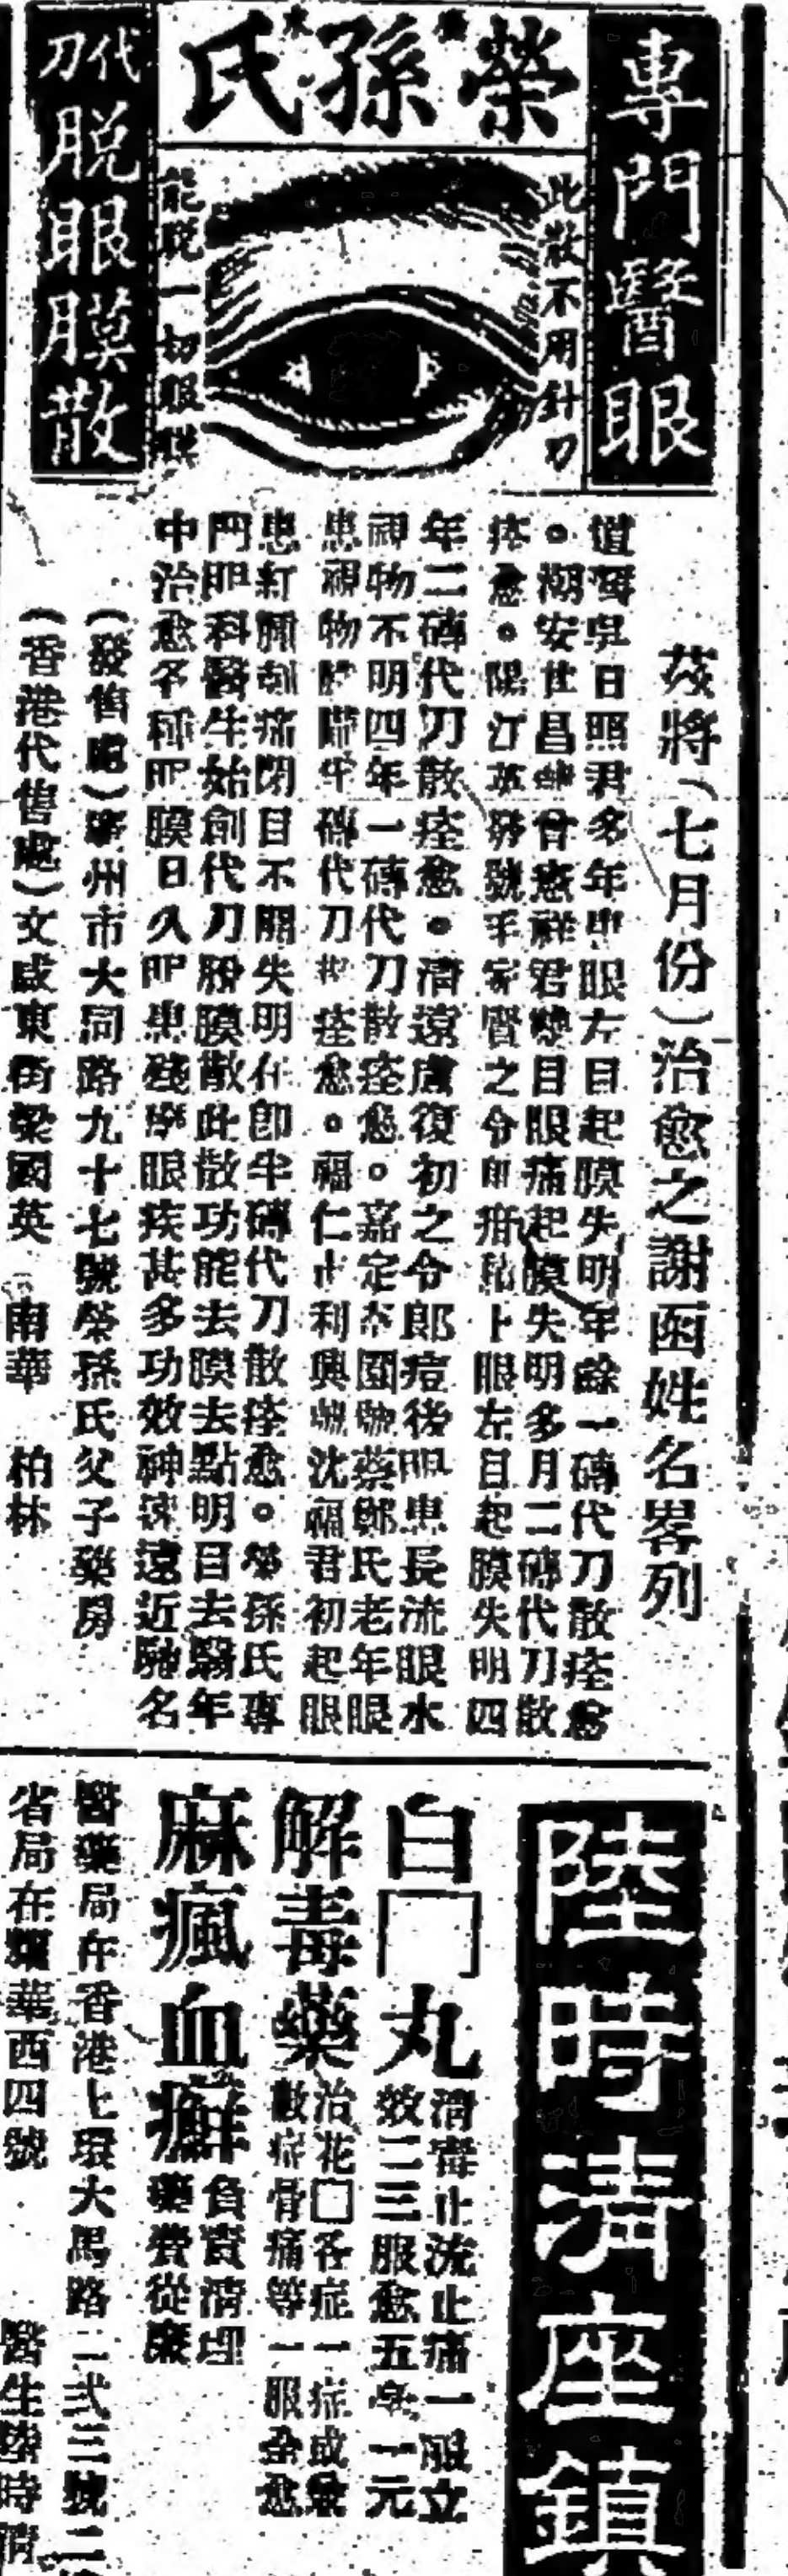 專門醫眼
榮孫氏
此散不用針刀
能脫一切眼膜
代刀脫眼膜散
茲將(七月份)治愈之謝函姓名畧列
吳日照君多年 眼左目起膜失明年餘一磚代刀散痊愈
。潮安 昌 君 目眼痛起膜失明多月二磚代刀散
痊愈。陽江 號 之令 眼左目起膜失明四
年二磚代刀散痊愈。清遠 復初之令郎痘後眼患長流眼水
視物不明四年一磚代刀散痊愈。嘉定 園 蔡鄭氏老年眼
患視物 半磚代刀 痊愈。福仁 利興號沈福君初起眼
患紅腫刺痛閉目不開失明 卽半磚代刀散痊愈。榮孫氏專
門眼科醫生始創代刀脫膜散此散功能去膜去點明目去翳年
中治愈各種眼膜日久眼患 眼疾甚多功效神速遠近馳名
(發售處)廣州市大同路九十七號榮孫氏父子藥房
(香港代售處)文咸東街梁國英 南華 柏林
陸時清座鎮
白□丸
清毒止流止痛一服立
效二三服愈五 一元
解毒藥
治花□各症一症或
散症骨痛等一服全愈
麻瘋血癬
負責清理
藥費從廉
醫藥局在香港上環大馬路二弍三號二
省局在 華西四號 醫生陸時清